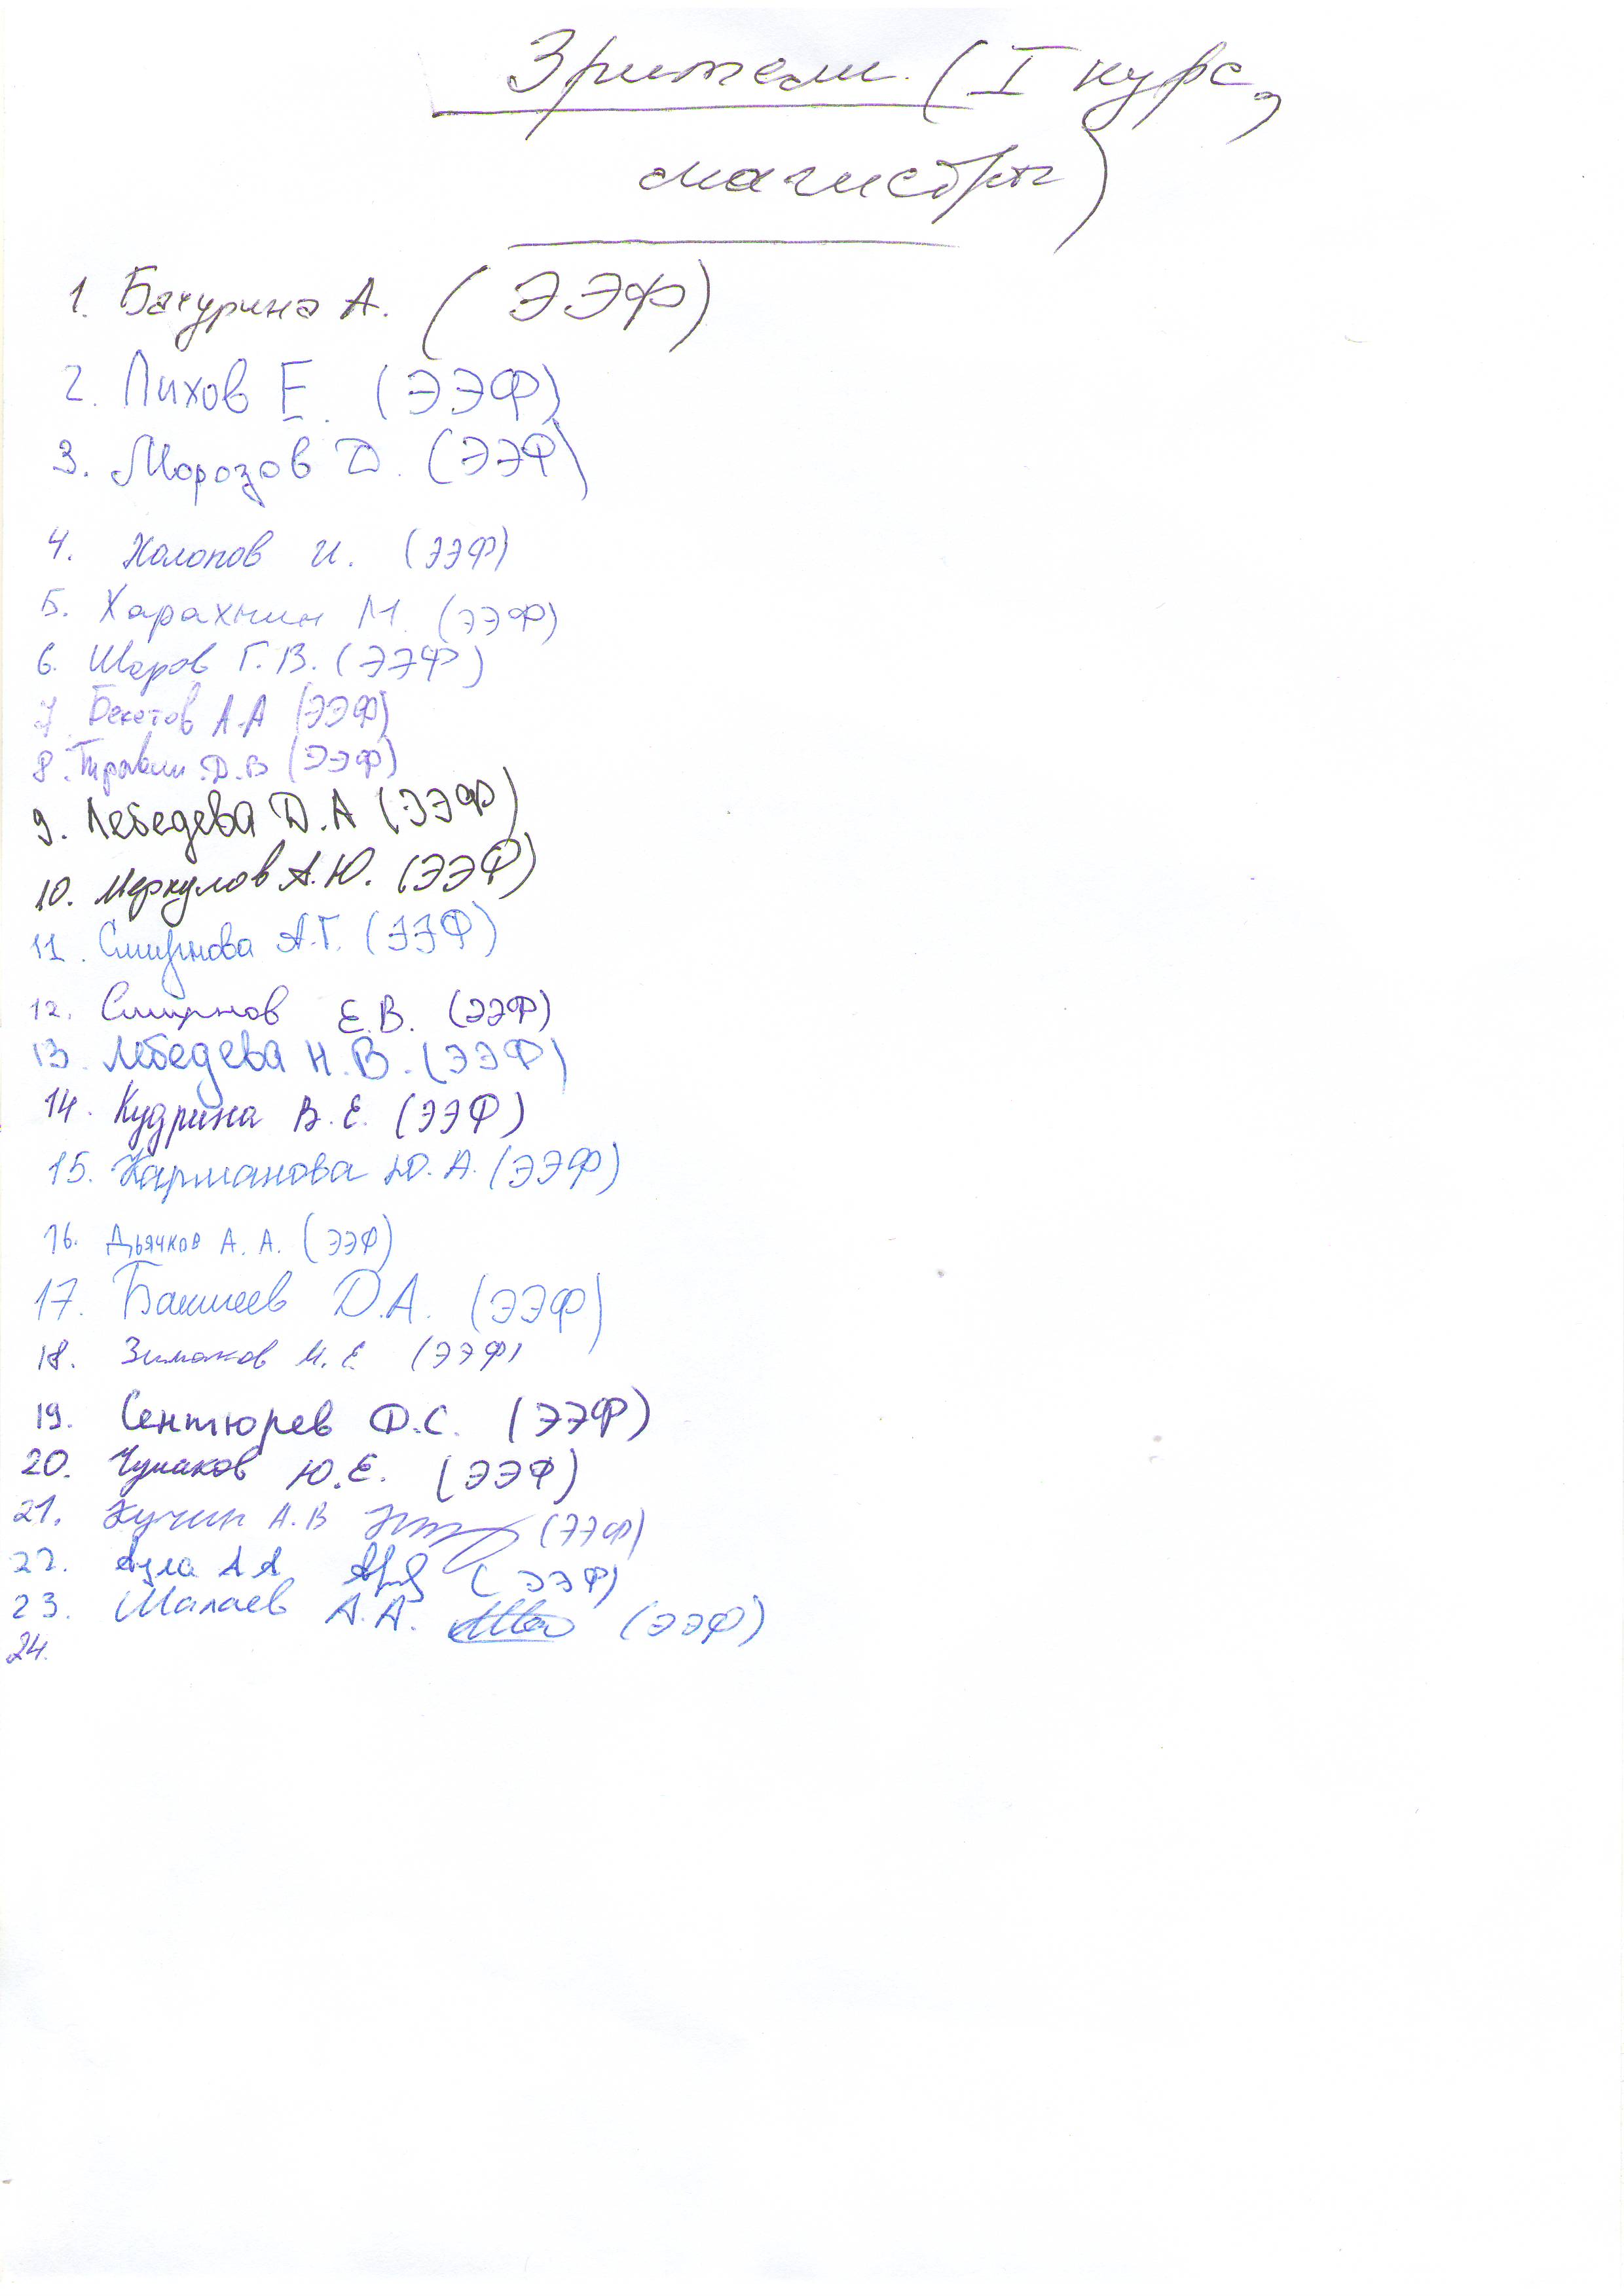 Зрители (I курс,
магистры)
1. Бачурина А. (ЭЭФ)
2. Лихов Е. (ЭЭФ)
3. Морозов Д. (ЭЭФ)
4. Холопов И. (ЭЭФ)
5. Харахнин М. (ЭЭФ)
6. Шаров Г.В. (ЭЭФ)
7. Бекетов А.А (ЭЭФ)
8. Д.В (ЭЭФ)
9. Лебедева Д.А (ЭЭФ)
10. Меркулов А.Ю. (ЭЭФ)
11. Смирнова А.Г. (ЭЭФ)
12. Смирнов Е.В. (ЭЭФ)
13. Лебедева Н.В. (ЭЭФ)
14. Кудрина В.Е. (ЭЭФ)
15. Карманова Ю.А. (ЭЭФ)
16. Дьячков А.А. (ЭЭФ)
17. Д.А. (ЭЭФ)
18. Зимаков М.Е (ЭЭФ)
19. Сентюрев Д.С. (ЭЭФ)
20. Чумаков Ю.Е. (ЭЭФ)
21. Кучин А.В (ЭЭФ)
22. А А (ЭЭФ)
23. Малаев А.А. (ЭЭФ)
24.